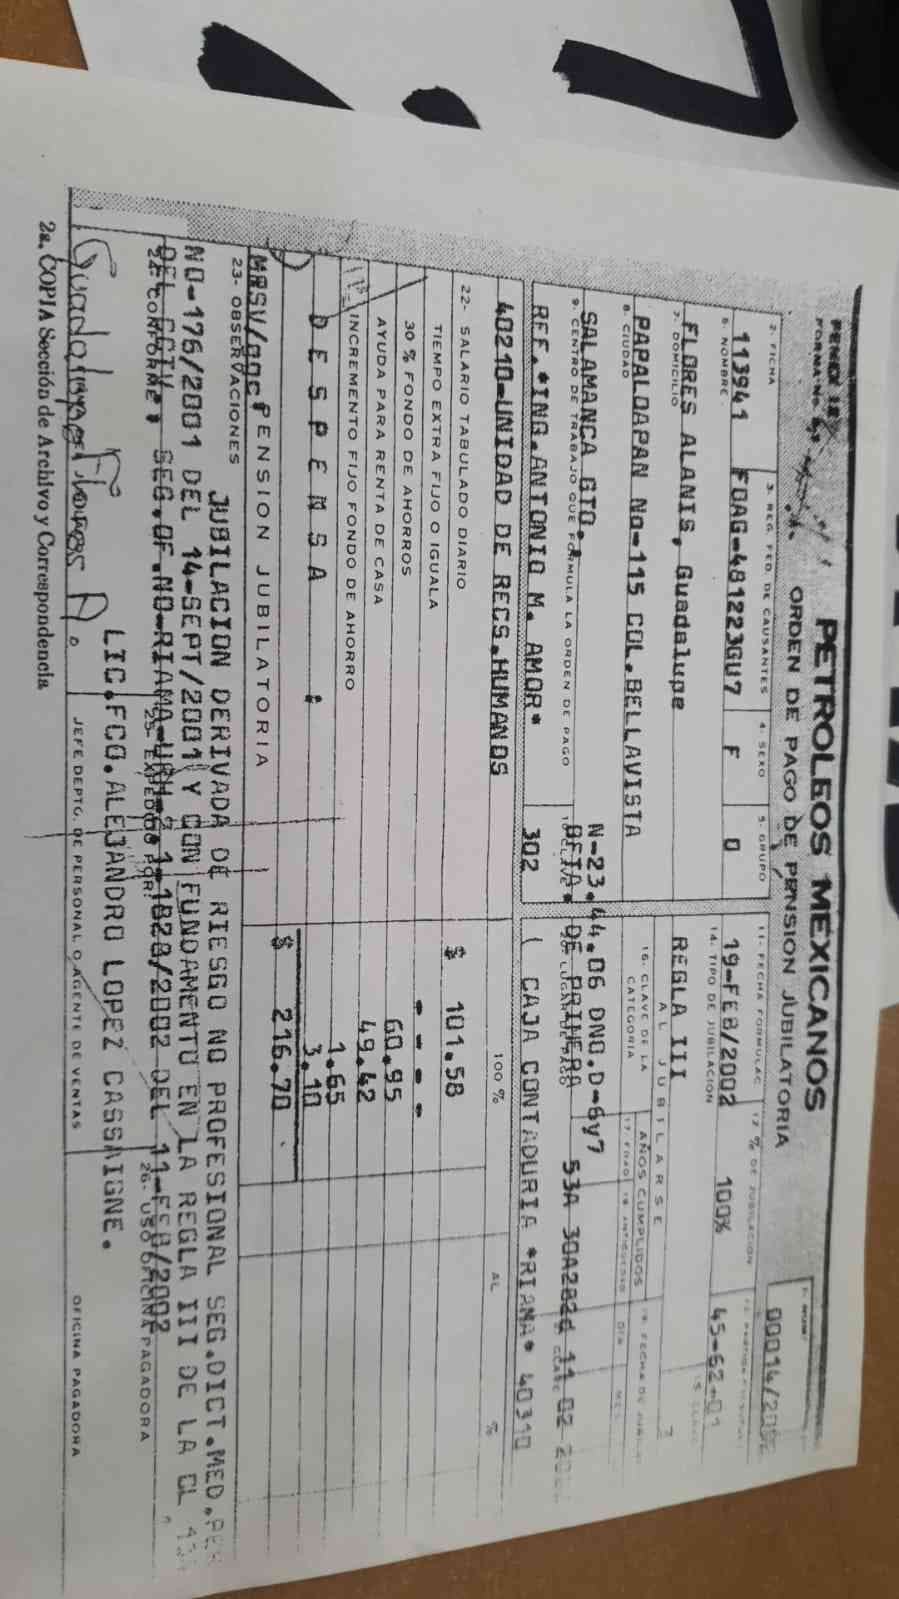 PETROLEOS MEXICANOS
ORDEN DE PAGO DE PENSION JUBILATORIA
FORMA No.
00014/200
2- FICHA 3- REG. FED. DE CAUSANTES 4- SEXO 5- GRUPO
113941 FOAG-481223GU7 F 0
11- FECHA FORMULAC 12 % DE JUBILACION
19-FEB/2002 100% 45-62-01
6- NOMBRE
FLORES ALANIS, Guadalupe
14- TIPO DE JUBILACION
REGLA III
7- DOMICILIO
PAPALOAPAN No-115 COL.BELLAVISTA
AL JUBILARSE
16- CLAVE DE LA CATEGORIA
AÑOS CUMPLIDOS
17- EDAD 18- ANTIGUEDAD
19- FECHA DE
DIA MES
8- CIUDAD
SALAMANCA GTO.
N-23.44.06 DNO.D-6y7
9- CENTRO DE TRABAJO QUE FORMULA LA ORDEN DE PAGO
OFTA. DE PRIMERA 53A 30A282d 11 02
REF.*ING.ANTONIO M. AMOR* 302 ( CAJA CONTADURIA *RIAMA* 40310
40210-UNIDAD DE RECS.HUMANOS
100 % AL %
22- SALARIO TABULADO DIARIO $ 101.58
TIEMPO EXTRA FIJO O IGUALA - - - -
30 % FONDO DE AHORROS 60.95
AYUDA PARA RENTA DE CASA 49.42
INCREMENTO FIJO FONDO DE AHORRO 1.65
D E S P E N S A : 3.10
PENSION JUBILATORIA $ 216.70
MRSV/goc*
23- OBSERVACIONES JUBILACION DERIVADA DE RIESGO NO PROFESIONAL SEG.DICT.MED.
NO-176/2001 DEL 14-SEPT/2001 Y CON FUNDAMENTO EN LA REGLA III DE LA CL.
SEG.OF.NO-RIAMA-URH-2.1-1828/2002 DEL 11-FEB/2002
24- CONFORME 25- EXPEDIDO POR: 26- USO OFICINA PAGADORA
LIC.FCO.ALEJANDRO LOPEZ CASSAIGNE.
Guadalupe Flores A.
JEFE DEPTO. DE PERSONAL O AGENTE DE VENTAS OFICINA PAGADORA
2a. COPIA Sección de Archivo y Correspondencia